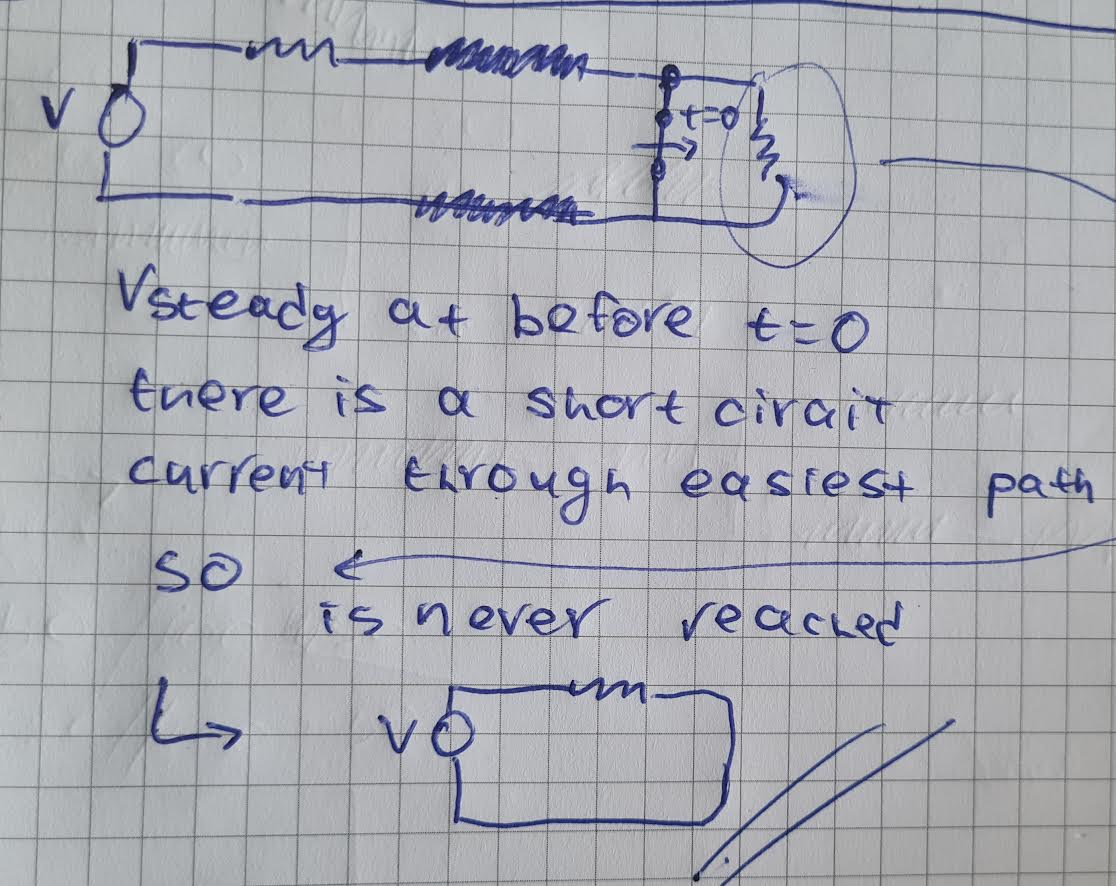 V
t=0
Vsteady at before t=0
there is a short cirait
current through easiest path
so
is never reached
V